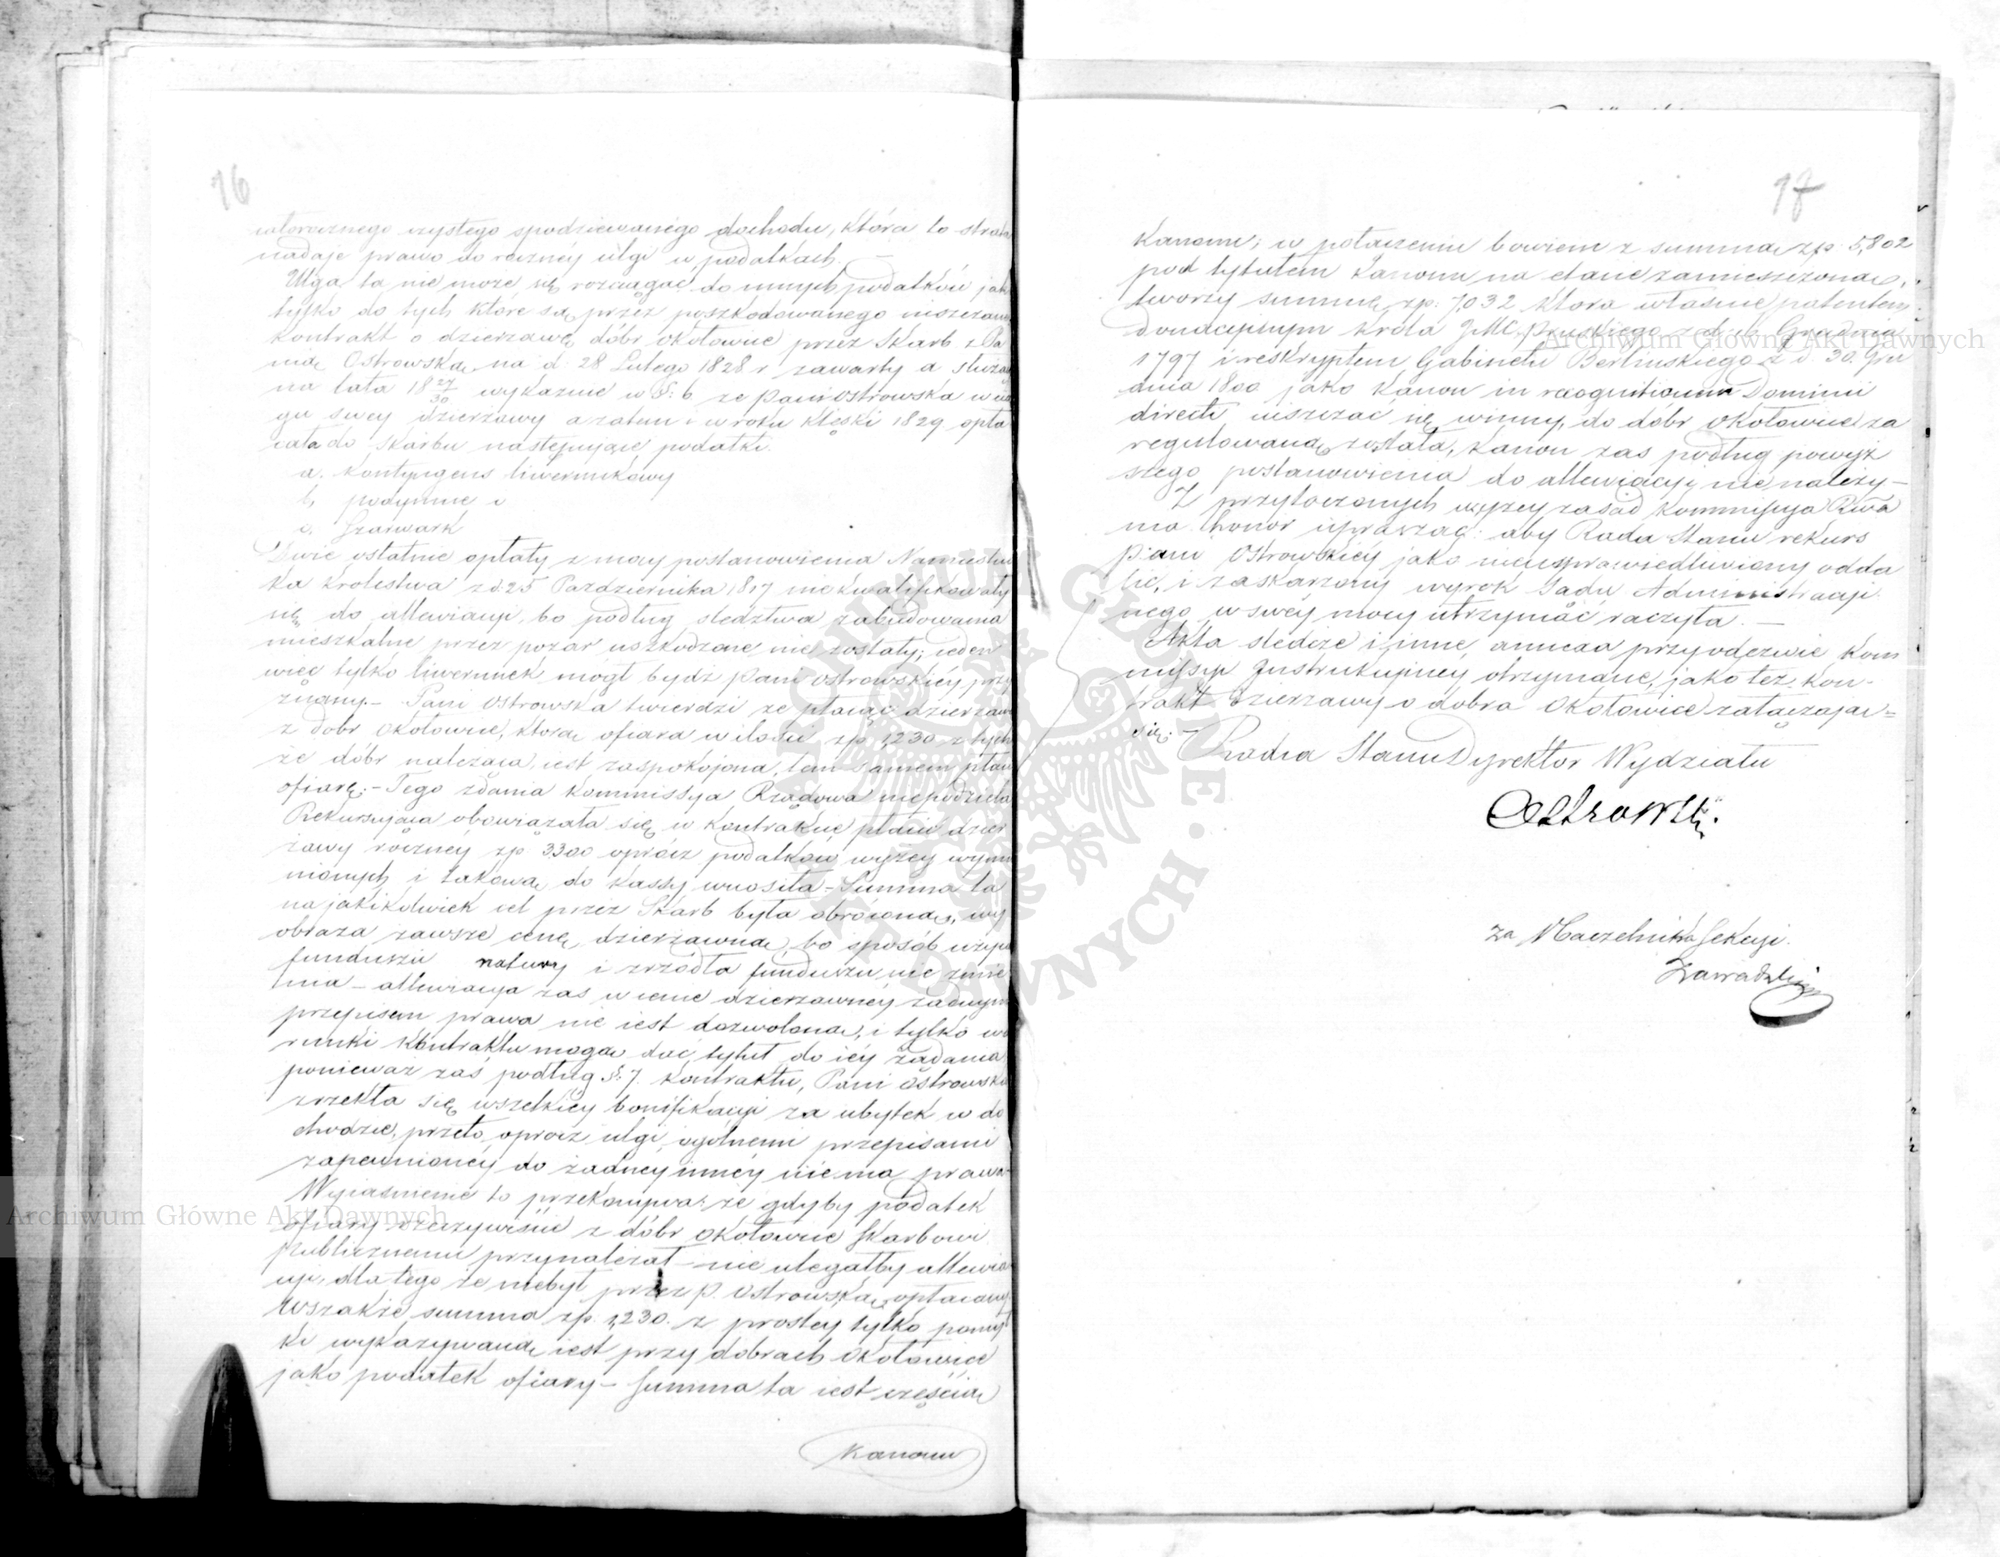 16
całorocznego czystego spodziewanego dochodu, która to strata
nadaje prawo do roczney ulgi w podatkach. —
Ulga ta nie może się rozciągać do innych podatków jak
tylko do tych które są przez poszkodowanego uiszczane
Kontrakt o dzierżawę dóbr Okołowice przez Skarb z Pa
nią Ostrowską na d. 28 Lutego 1828 r zawarty a służą
na lata 18 27/30 wykazuie w §: 6 że Pani Ostrowska w cią
gu swey dzierżawy a zatem i w roku klęski 1829 opła
cała do Skarbu następuiące podatki.
a. Kontyngens liwerunkowy
b, podymne i
c, Szarwark
Dwie ostatnie opłaty z mocy postanowienia Namiestni
ka Królestwa z d 25 Pazdziernika 1817 nie kwalifikowały
się do allewiacyi, bo podług śledztwa zabudowania
mieszkalne przez pożar uszkodzone nie zostały; ieden
więc tylko liwerunek mógł bydź Pani Ostrowskiéy przy
znany. – Pani Ostrowska twierdzi że płacąc dzierżawę
z dobr Okołowice, którą ofiara w ilości zp 1,230 z tych
że dóbr należąca, iest zaspokojona, tem samem płaci
ofiarę. – Tego zdania Kommissya Rządowa niepodziela
Rekursuiąca obowiązała się w Kontrakcie płacić dzier
żawy roczney zp 3300 oprócz podatków wyżey wymie
nionych i takową do kassy wnosiła – Summa ta
na jakikolwiek cel przez Skarb była obróconą, wy
obraża zawsze cenę dzierżawną, bo sposób użycia
funduszu natury i zrzódła funduszu nie zmie
nia – allewiacya zaś w cenie dzierżawnéy żadnym
przepisem prawa nie iest dozwoloną, i tylko wa
runki Kontraktu mogą dać tytuł do iéy żądania
ponieważ zaś podług §: 7. Kontraktu, Pani Ostrowska
zrzekła się wszelkiéy bonifikacyi za ubytek w do
chodzie, przeto oprócz ulgi, ogólnemi przepisami
zapewnionéy do żadney innéy niema prawa
Wyiaśnienie to przekonywa, że gdyby podatek
ofiary rzeczywiście z dóbr Okołowice Skarbowi
Publicznemu przynależał – nie ulegałby allewia
cyi, dla tego że niebył przez P. Ostrowską opłacany
Wszakże summa zp. 1,230. z prostey tylko pomył
ki wykazywaną iest przy dobrach Okołowice
jako podatek ofiary – Summa ta iest częścią
Kanonu
17
Kanonu; w połączeniu bowiem z summą zp 5,802
pod tytułem Kanonu na etacie zamieszczoną,
tworzy summę zp: 7,032 która właśnie patentem
donacyinym Króla JMC Pruskiego z d. Grudnia
1797 i reskryptem Gabinetu Berlinskiego z d 30. Gru
dnia 1800 jako Kanon in recognitionem Dominii
directi uiszczać się winny, do dobr Okołowice za
regulowaną została, Kanon zaś podług powyż
szego postanowienia do allewiacyi nie należy –
Z przytoczonych wyżey zasad Kommissyja Rzą
ma honor upraszać: aby Rada Stanu rekurs
Pani Ostrowskiéy jako nieusprawiedliwiony odda
lić, i zaskarżony wyrok Sądu Administracyi
nego w swéy mocy utrzymać raczyła. —
Akta śledcze i inne annexa przy odezwie Kom
missyi Instrukcyiney otrzymane, jako też Kon-
trakt dzierżawy o dobra Okołowice załączają=
się.
Radca Stanu Dyrektor Wydziału
Ostrowski.
za Naczelnika Sekcyi.
Zawadzki
Kanonu
Archiwum Główne Akt Dawnych
Archiwum Główne Akt Dawnych
ARCHIWUM GŁÓWNE AKT DAWNYCH